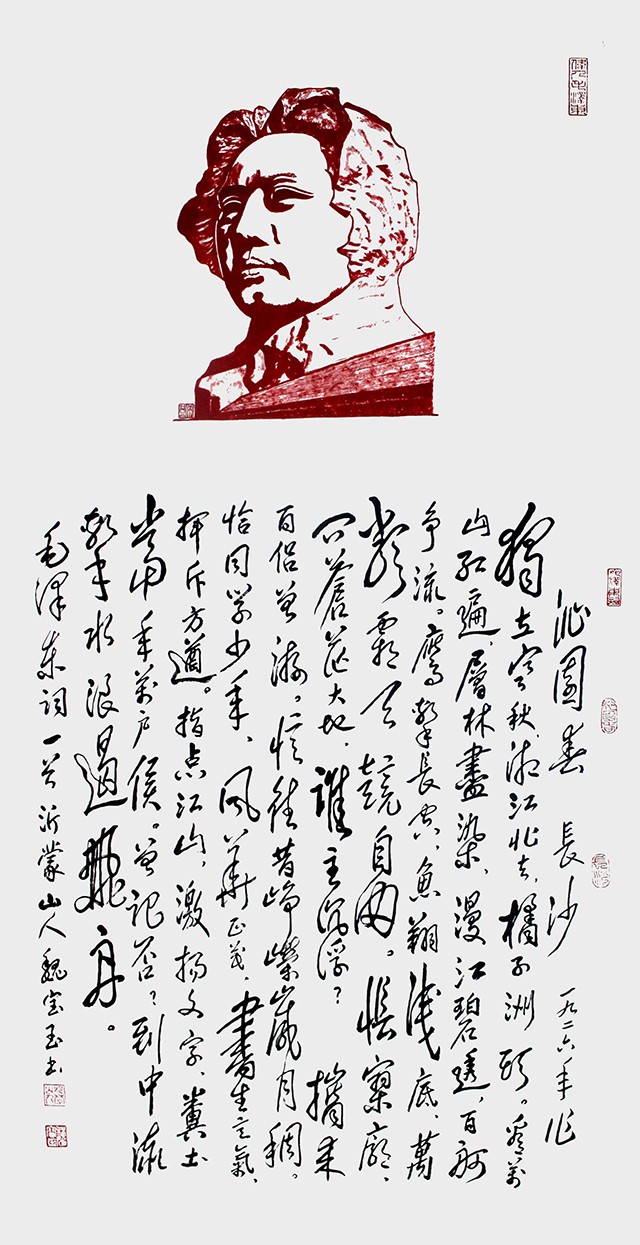 沁園春 長沙 一九二六年作
獨立寒秋、湘江北去、橘子洲頭。看萬
山红遍、層林盡染、漫江碧透、百舸
争流。鹰擊長空、魚翔淺底、萬
類霜天競自由。悵寥廓、
问蒼茫大地、誰主沉浮？攜来
百侣曾游。忆往昔峥嵘歲月稠。
恰同学少年、风華正茂、書生意氣、
揮斥方遒。指点江山、激扬文字、糞土
當年萬户侯。曾记否？到中流
擊水浪遏飛舟。
毛泽东词一首 沂蒙山人魏宝玉书